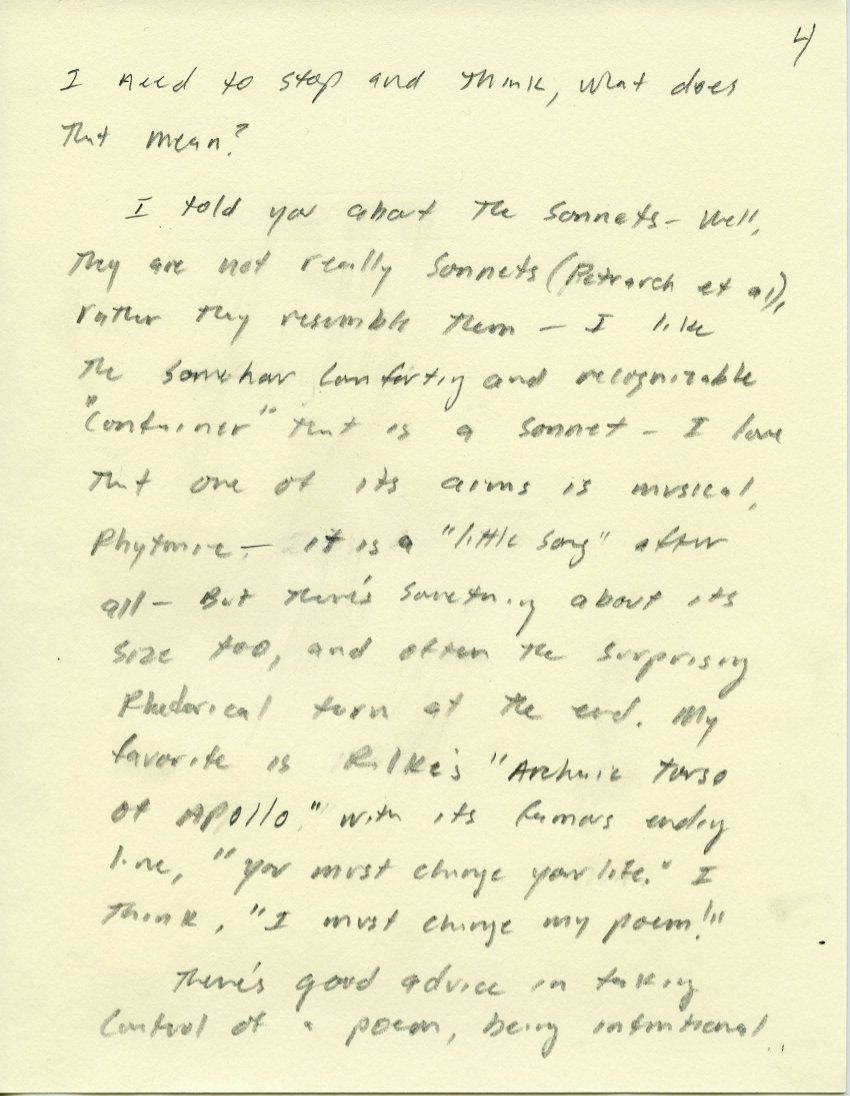 4
I need to stop and think, what does
that mean?
I told you about the sonnets – well,
they are not really sonnets (Petrarch et al),
rather they resemble them – I like
the somehow comforting and recognizable
"container" that is a sonnet – I love
that one of its aims is musical,
Rhytmic – it is a "little song" after
all – But there's something about its
size too, and often the surprising
Rhetorical turn at the end. My
favorite is Rilke's "Archaic Torso
of Apollo" with its famous ending
line, "you must change your life." I
think, "I must change my poem!"
There's good advice in taking
control of a poem, being intentional